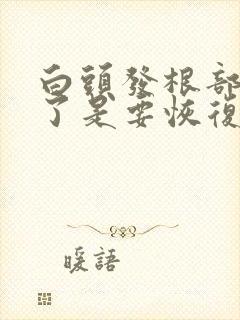 白頭發根部
了是要恢復
暖語